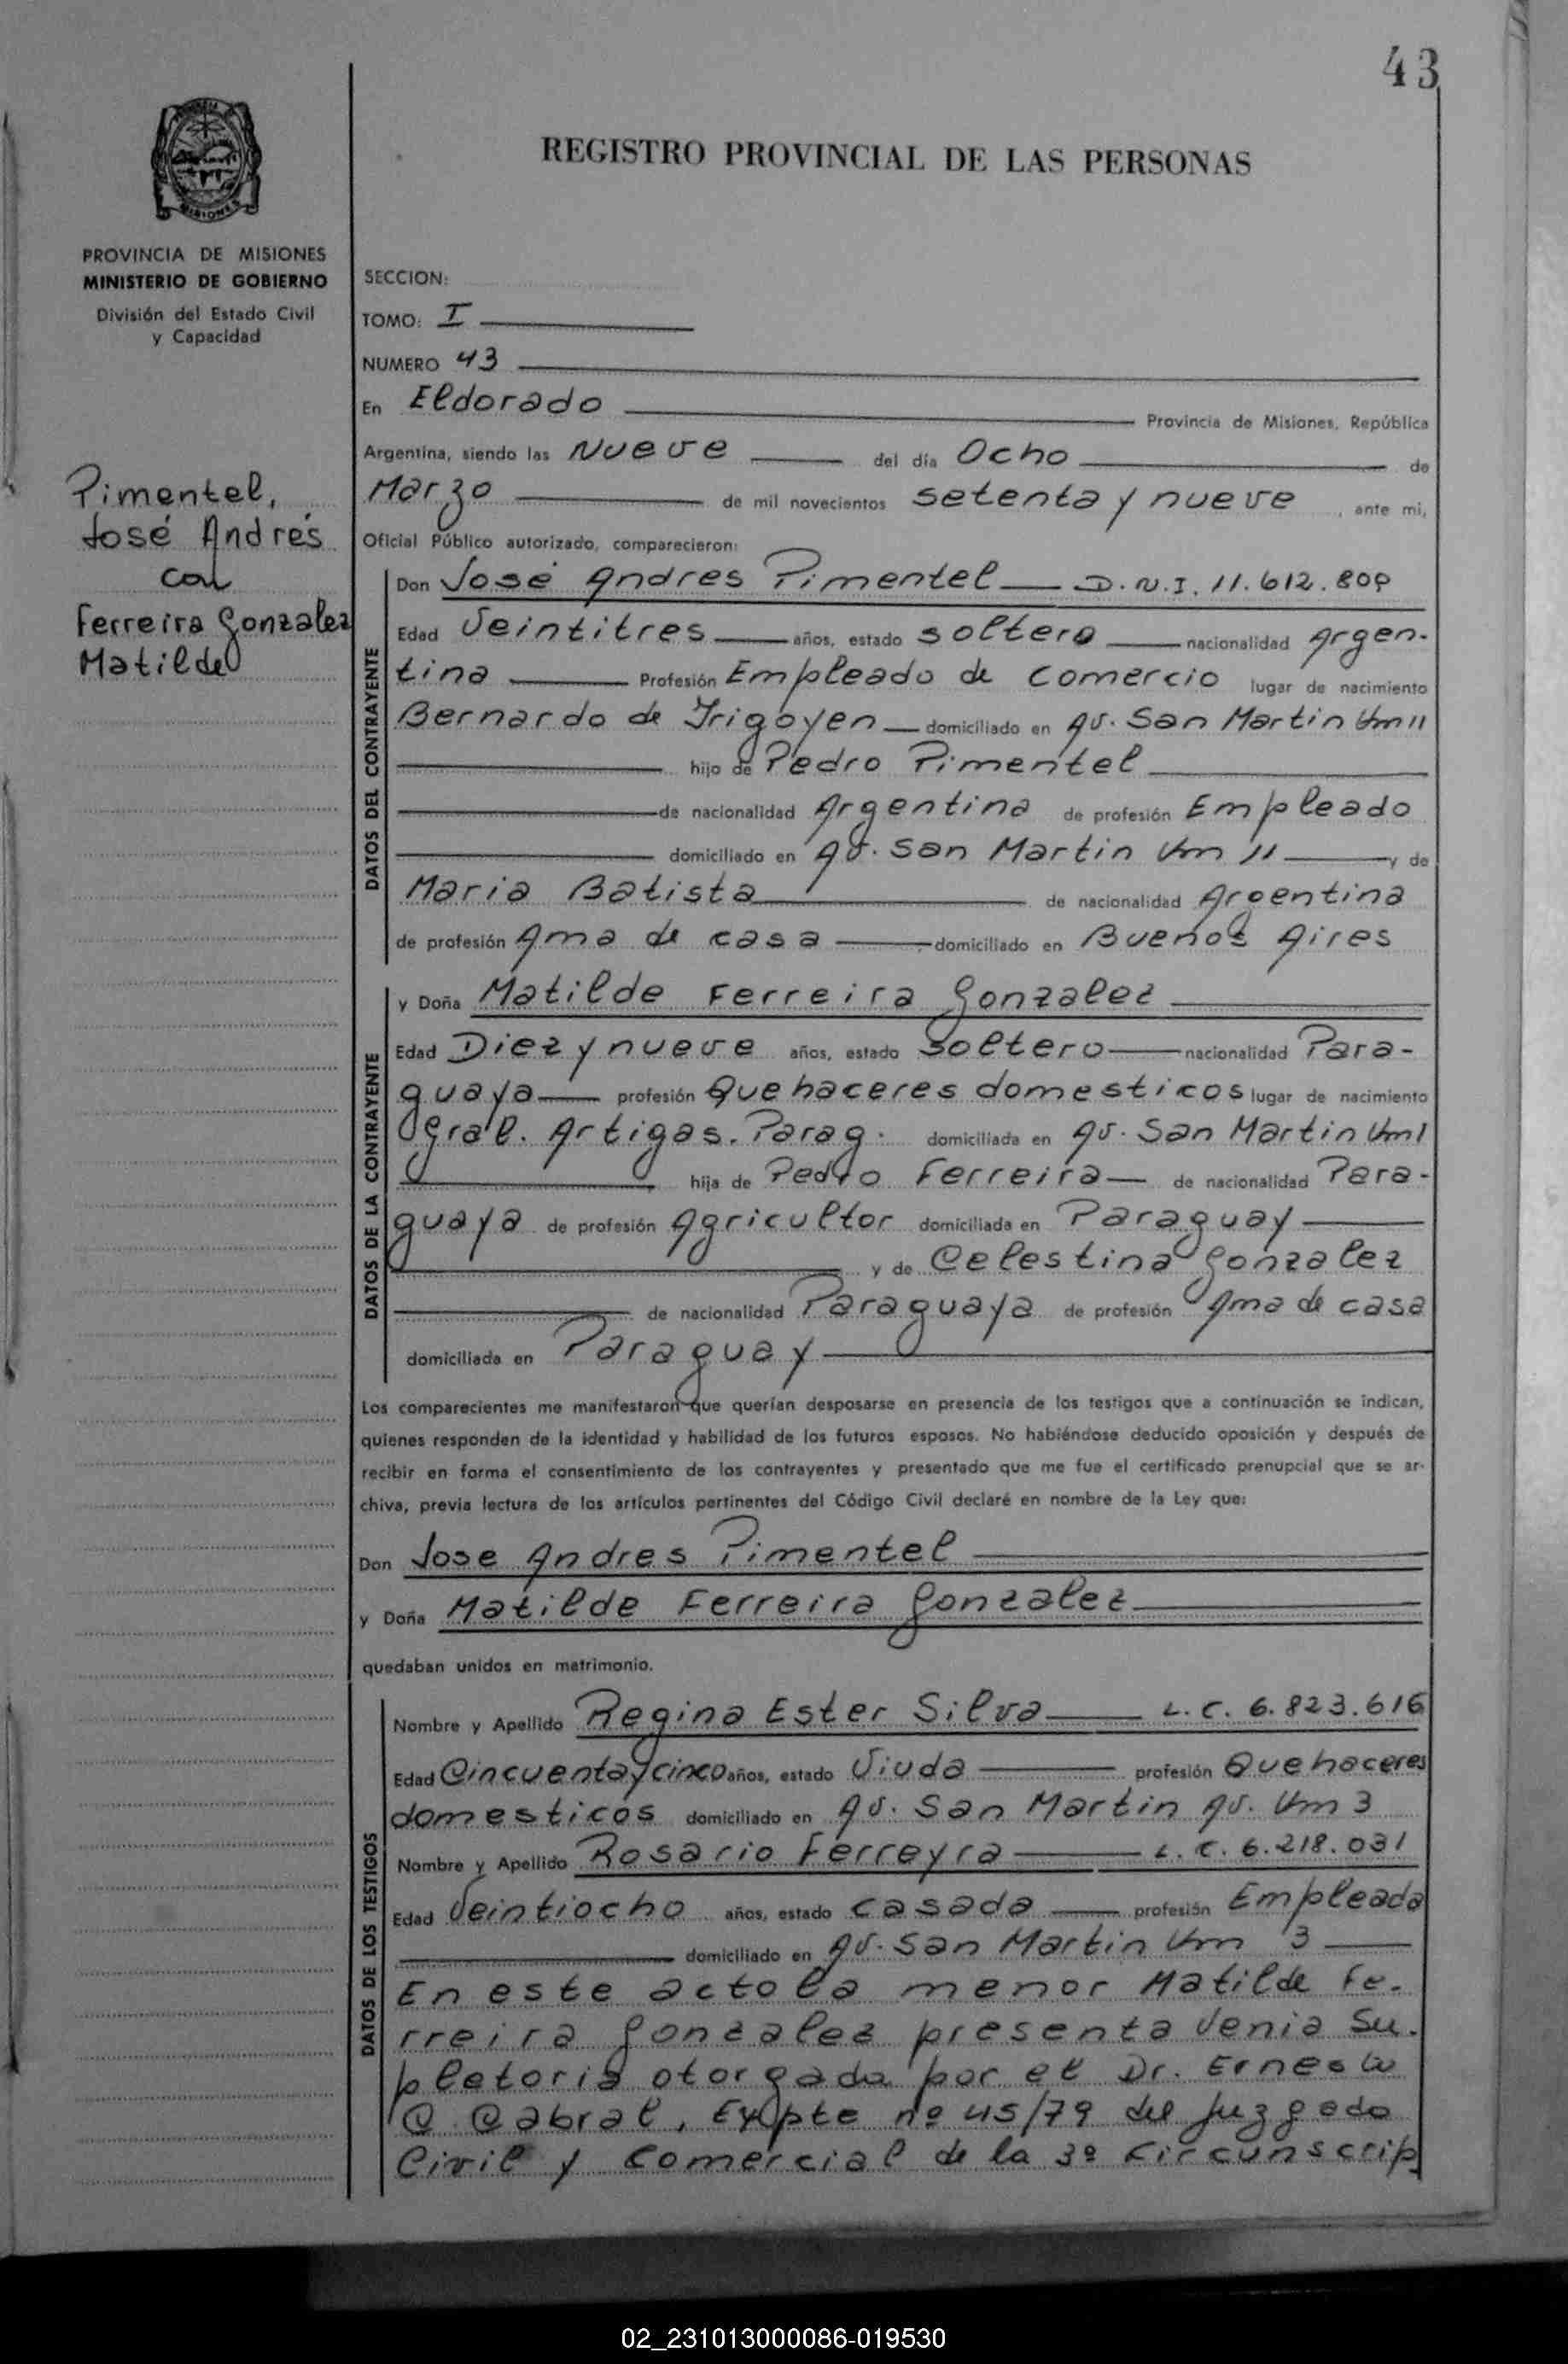 43
REGISTRO PROVINCIAL DE LAS PERSONAS
MISIONES
PROVINCIA DE MISIONES
MINISTERIO DE GOBIERNO
División del Estado Civil
y Capacidad
Pimentel,
José Andrés
con
Ferreira Gonzalez
Matilde
SECCION:
TOMO: I
NUMERO 43
En Eldorado Provincia de Misiones, República
Argentina, siendo las Nueve del día Ocho de
Marzo de mil novecientos setenta y nueve , ante mi,
Oficial Público autorizado, comparecieron:
DATOS DEL CONTRAYENTE
Don José Andres Pimentel D.N.I. 11.612.809
Edad Veintitres años, estado soltero nacionalidad Argen-
tina Profesión Empleado de Comercio lugar de nacimiento
Bernardo de Irigoyen domiciliado en Av. San Martin Km 11
hijo de Pedro Pimentel
de nacionalidad Argentina de profesión Empleado
domiciliado en Av. San Martin Km 11 y de
Maria Batista de nacionalidad Argentina
de profesión Ama de casa domiciliado en Buenos Aires
DATOS DE LA CONTRAYENTE
y Doña Matilde Ferreira Gonzalez
Edad Diez y nueve años, estado Soltero nacionalidad Para-
guaya profesión Quehaceres domesticos lugar de nacimiento
Gral. Artigas. Parag. domiciliada en Av. San Martin Km 1
hija de Pedro Ferreira de nacionalidad Para-
guaya de profesión Agricultor domiciliada en Paraguay
y de Celestina Gonzalez
de nacionalidad Paraguaya de profesión Ama de casa
domiciliada en Paraguay
Los comparecientes me manifestaron que querían desposarse en presencia de los testigos que a continuación se indican,
quienes responden de la identidad y habilidad de los futuros esposos. No habiéndose deducido oposición y después de
recibir en forma el consentimiento de los contrayentes y presentado que me fue el certificado prenupcial que se ar-
chiva, previa lectura de los artículos pertinentes del Código Civil declaré en nombre de la Ley que:
Don Jose Andres Pimentel
y Doña Matilde Ferreira Gonzalez
quedaban unidos en matrimonio.
DATOS DE LOS TESTIGOS
Nombre y Apellido Regina Ester Silva L.C. 6.823.616
Edad Cincuenta y cinco años, estado Viuda profesión Quehaceres
domesticos domiciliado en Av. San Martin Av. Km 3
Nombre y Apellido Rosario Ferreyra L.C. 6.218.031
Edad Veintiocho años, estado casada profesión Empleada
domiciliado en Av. San Martin Km 3
En este acto la menor Matilde Fe-
rreira Gonzalez presenta venia Su-
pletoria otorgada por el Dr. Ernesto
C. Cabral, Expte nº 45/79 del Juzgado
Civil y Comercial de la 3º Circunscrip
02_231013000086-019530